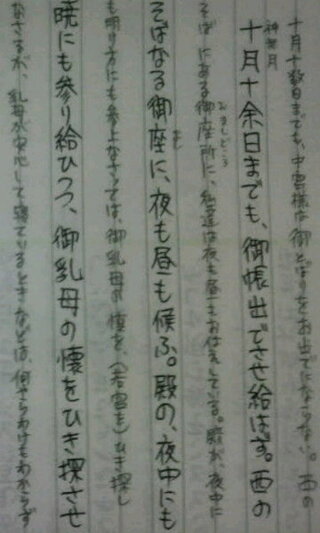 十月十数日までも、中宮様は御とばりをお出でにならない。西の
神無月
十月十余日までも、御帳出でさせ給はず。西の
おましどころ
そばにある御座所に、私達は夜も昼もお仕えしている。殿が、夜中に
おまし
そばなる御座に、夜も昼も候ふ。殿の、夜中にも
も明け方にも参上なさっては、御乳母の懐を、(若宮を)ひき探し
暁にも参り給ひつつ、御乳母の懐をひき探させ
なさるが、乳母が安心して寝ているときなどは、何やらわけもわからず